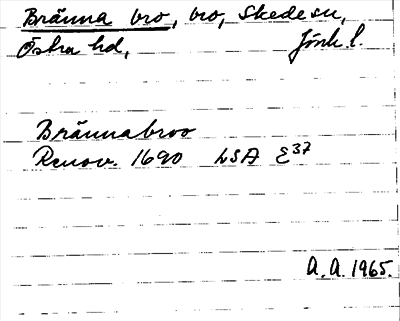 Bränna bro, bro, Skede sn,
Östra hd, Jönk l.
Brännabroo
Renov. 1690 LSA E37
A.A. 1965.